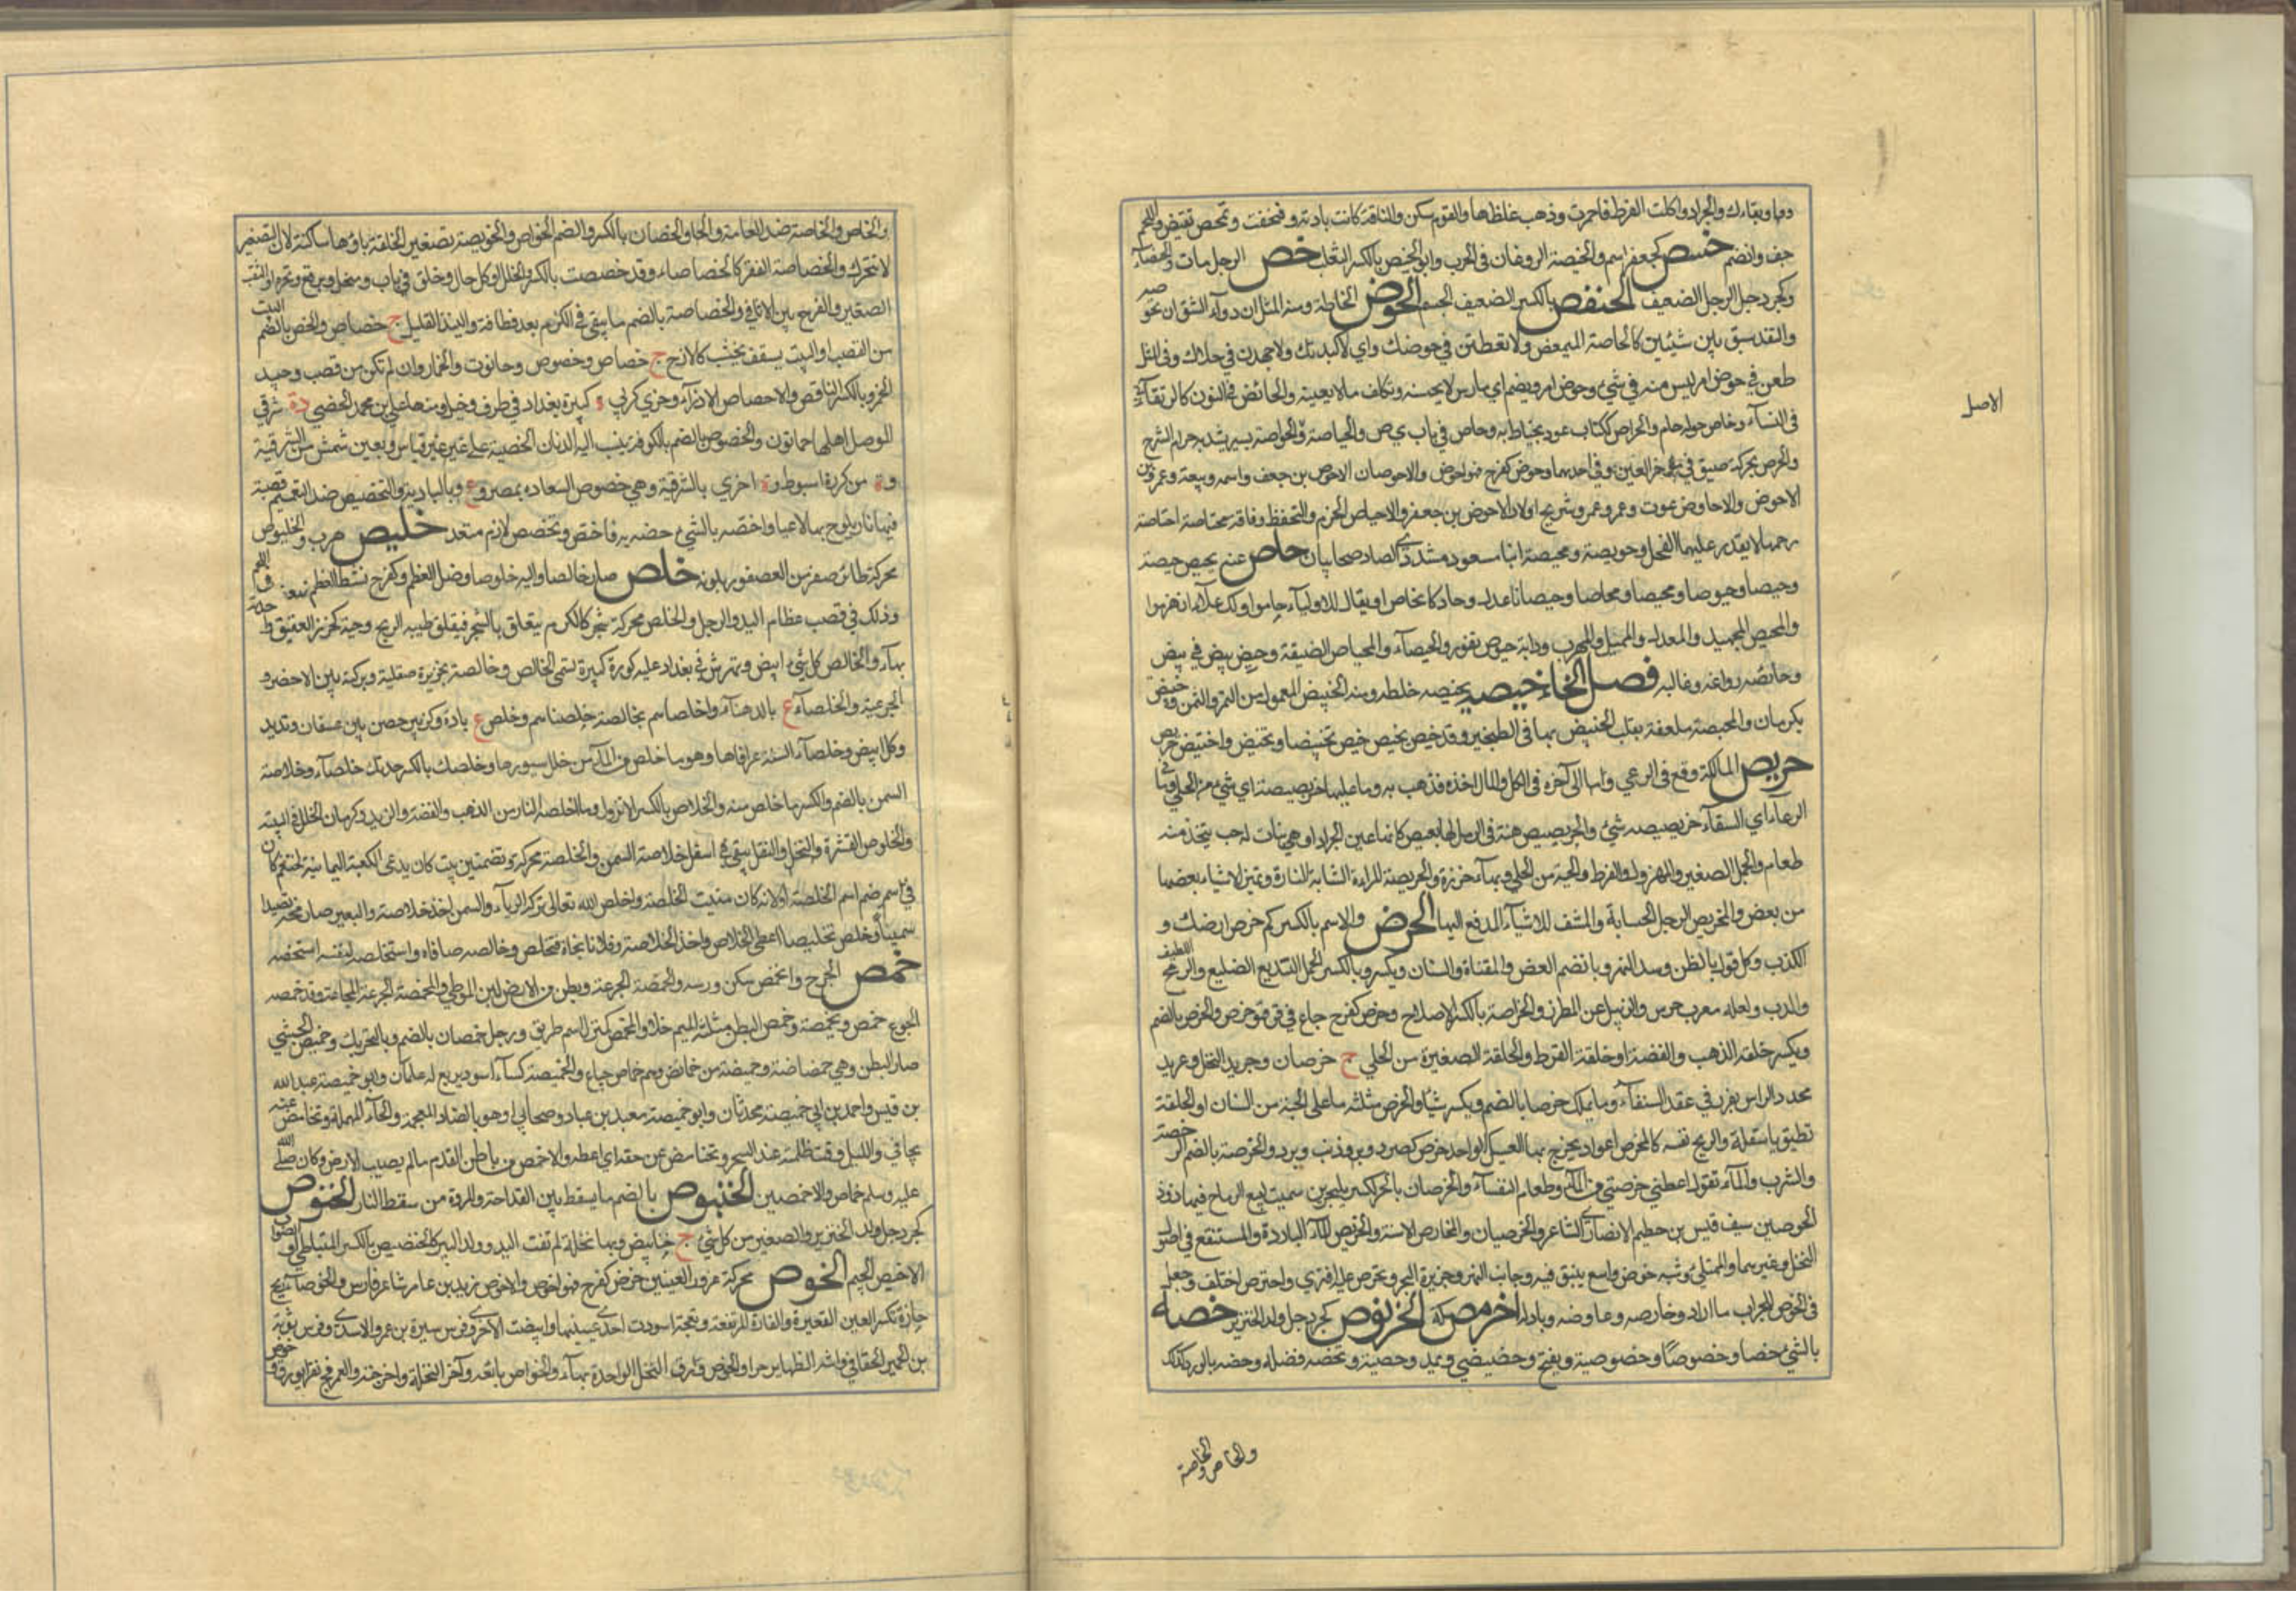 دوما وبقاءك والجراد واكلت القرظ فاحمرت وذهب غلظها والقوم سكن والناقة كانت بادنة فنحفت وتحص تقبض واللحم
جف وانضم حنبص كجعفر اسم والحبيصة الروغان في الحرب وابو الحنبص بالكسر الثعلب حنص الرجل مات والحنصاء
وكجردحل الرجل الضعيف الحنفص بالكسر الضعيف الجسم الحوص الخياطة ومنه المثل ان دواء الشق ان تحوصه
والتقد سبق بين شيئين كالحياصة ولاطعنن في حوصك اي لاكيدنك ولاجهدن في هلاكك وفي المثل
طعن في حوص امر ليس منه في شئ وحوص امر ويضم اي مارس لا يحسنه وتكلف ما لا يعينه والحائص في النوق كالرتقاء
في النساء وحاص حوله حام والحواص ككتاب عود يخاط به وحاص في باب ي ص والحياصة والحواصة سير يشد به حزام السرج
والحوص محركة ضيق في مؤخر العينين وفي احدهما وحوص كفرح فهو احوص والاحوصان الاحوص بن جعفر واسمه ربيعة وعمرو بن
الاحوص والاحاوص عوف وعمرو وشريح اولاد الاحوص بن جعفر والاحتياص الحزم والتحفظ وناقة محتاصة احتاصت
رحمها لا يقدر عليها الفحل وحويصة ومحيصة ابنا مسعود مشددي الصاد صحابيان حاص عنه يحيص حيصة
وحيصا وحيوصا ومحيصا ومحاصا وحيصانا عدل وحاد كانحاص او يقال للاولياء حاصوا وللاعداء انهزموا
والمحيص المحيد والمعدل والمميل والمهرب ودابة حيوص نفور والحيصاء والمحياص الضيقة وحيص بيص في بيص
وحائصه راوغه وغالبه فصل الخاء خبصه يخبصه خلطه ومنه الخبيص المعمول من التمر والسمن وخبيص
بكرمان والمخبصة ملعقة يقلب الخبيص بها في الطنجير وقد خبص يخبص وخبص تخبيصا وتخبص واختبص خربص
خربص المال وقع في الرعي والمال اخذه فذهب به وما عليها خربصيصة اي شئ من الحلي وما في
الوعاء اي السقاء خربصيصة شئ والخربصيص هنة في الرمل لها بصيص كانها عين الجراد او هي نبات له حب يتخذ منه
طعام والجمل الصغير والمهزول والقرط والحبة من الحلي وبهاء خرزة والخربصة المراة الشابة التارة وتميز الاشياء بعضها
من بعض والمخربص الرجل الحسابة والمشف للاشياء المدقع اليها الخرص والاسم بالكسر كم خرص ارضك و
الكذب وكل قول بالظن وسد النهر وبالضم الغصن والقناة والسنان ويكسر وبالكسر الجمل الشديد الضليع والرمح اللطيف
والدب ولعله معرب خرس والزبيل عن المطرز والخراصة بالكسر الاصلاح وخرص كفرح جاع في قر فهو خرص والخرص بالضم
ويكسر حلقة الذهب والفضة او حلقة القرط والحلقة الصغيرة من الحلي ج خرصان وجريد النخل وعويد
محدد الراس يغرز في عقد السقاء وما يملك خرصا بالضم ويكسر شيئا والخرص مثلثة ما على الجبة من السنان او الحلقة
تطيق باسفله والرمح نفسه كالمخرص اعواد يخرج بها العسل الواحد خرص كصرد وبرد والخرصة بالضم الرخصة
والشرب والماء تقول اعطني خرصتي من الماء وطعام النفساء والخرصان بالبحرين سميت لبيع الرماح فيها وذو
الخرصين سيف قيس بن خطيم الانصاري الشاعر والخرصيان والمخارص الاسنة والخريص الماء البارد والمستنقع في اصول
النخل وغيرها والممتلئ وشبه حوض واسع ينبثق فيه وجانب النهر وجزيرة البحر وتخرص عليه افترى واخترص اختلق وجعل
في الخرص للجراب ما اراد وخارصه وعاوضه وبادله اخرمص سكت الخرنوص كجردحل ولد الخنزير خصه
بالشئ خصا وخصوصا وخصوصية ويفتح وخصيصي ويمد وخصية وتخصه فضله وخصه بالود كذلك
والخاص والخاصة
الاصل
والخاص والخاصة ضد العامة والخصان بالكسر والضم الخواص والخويصة تصغير الخاصة ياؤها ساكنة لان التصغير
لا تتحرك والخصاصة الفقر كالخصاصاء وقد خصصت بالكسر والخلل او كل خلل وخرق في باب ومنخل وبرقع ونحوه او الثقب
الصغير والفرج بين الاثافي والخصاصة بالضم ما يبقى في الكرم بعد قطافه والنبذ القليل ج خصاص والخص بالضم البيت
من القصب او البيت يسقف بخشب كالازج ج خصاص وخصوص وحانوت الخمار وان لم تكن من قصب وجيد
الخمر وبالكسر الناقص والاخصاص الازراء وخصي كربي ة كبيرة بغداد في طرف دجيل منها علي بن محمد الخصي وة شرقي
الموصل اهلها جمالون والخصوص بالضم بالكوفة ينسب اليه الدنان الخصية على غير قياس وة بعين شمس من الشرقية
وة من كورة اسيوط وة اخرى بالشرقية وهي خصوص السعادة بمصر وع بالبادية والتخصيص ضد التعميم
فيها نار يلوح بها لاعبا واختصه بالشئ خصه به فاختص وتخصص لازم متعد خلبص هرب والخلبوص
محركة طائر اصغر من العصفور بلونه خلص صار خالصا واليه خلوصا وصل العظم وكفرح نشظ العظم في اللحم
وذلك في قصب عظام اليد والرجل والخلص محركة شجر كالكرم يتعلق بالشجر فيعلو طيب الريح وحبه كخرز العقيق
بهاء والخالص كل شئ ابيض ونهر شرقي بغداد عليه كورة كبيرة تسمى الخالص وخالصة بجزيرة صقلية وبركة بين الاجفر و
الخزيمية والخلصاء ع بالدهناء واخلصه اسم وخلص ع بارة وكزبير حصن بين عسفان وقديد
وكل ابيض وخلصا الشنة عراقاها وهو ما خلص من الماء من خلل سيورها وخلصك بالكسر خدنك ج خلصاء وخلاصة
السمن بالضم والكسر ما خلص منه والخلاص بالكسر الاثر وما اخلصته النار من الذهب والفضة والزبد وكرمان الخلل في البيت
والخلوص القشدة والثفل يبقى في اسفل خلاصة السمن والخلصة محركة وبضمتين بيت كان يدعى الكعبة اليمانية لخثعم كان
فيه صنم اسمه الخلصة او لانه كان منبت الخلصة واخلص لله تعالى ترك الرياء والسمن اخذ خلاصته والبعير صار مخه قصيدا
سمينا وخلص تخليصا اعطى الخلاص واخذ الخلاصة وفلانا نجاه فتخلص وخالصه صافاه واستخلصه لنفسه استخصه
خمص الجرح وانخمص سكن ورمه والخمصة الجوعة وبطن من الارض لين الموطئ والمخمصة المجاعة وقد خمصه
الجوع خمصا ومخمصة وخمص البطن مثلثة الميم خلا والمخمص كمنزل اسم طريق ورجل خمصان بالضم وبالتحريك وخميص الحشى
ضامر البطن وهي خمصانة وخميصة من خمائص وهم خماص جياع والخميصة كساء اسود مربع له علمان وابو خميصة عبد الله
بن قيس واحمد بن ابي خميصة محدثان وابو خميصة معبد بن عباد وصحابي او هو بالضاد المعجمة والحاء المهملة وتخامص عنه
تجافى والليل رقت ظلمته عند السحر وتخامص عن حقه اي اعطه والاخمص من باطن القدم ما لم يصب الارض وكان صلى الله
عليه وسلم خمصان الاخمصين الخنبوص بالضم ما يسقط بين القداحة والمروة من سقط النار الخنوص
كجردحل ولد الخنزير والصغير من كل شئ ج خنانيص وبهاء نخلة لم تفت اليد وولد الببر كالخنصيص بالكسر
الجسم الخوص محركة غؤر العينين خوص كفرح فهو اخوص والاخوص زيد بن عامر شاعر فارس والخوصاء ريح
حارة تكسر العين والقعيرة والقارة المرتفعة ونعجة اسودت احدى عينيها وابيضت الاخرى وفرس سبرة بن عمرو الاسدي وفرس توبة
بن الحمير الخفاجي واشد الظهائر حرا والخوص ورق النخل الواحدة بهاء والخواص بائعه واخوصت النخلة اخرجته والعرفج تفطر بورق